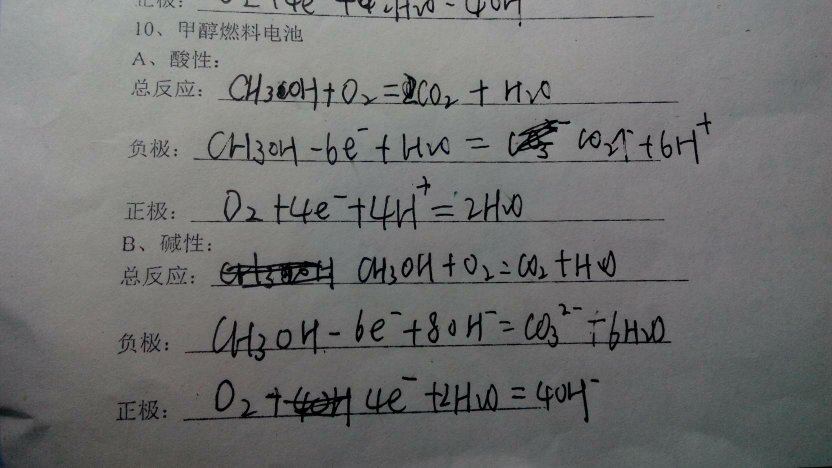 正极: O2+4e⁻+4H2O=4OH
10、甲醇燃料电池
A、酸性:
总反应: CH3OH+O2=2CO2+H2O
负极: CH3OH-6e⁻+H2O= CO2↑+6H⁺
正极: O2+4e⁻+4H⁺=2H2O
B、碱性:
总反应: CH3OH+O2=CO2+H2O
负极: CH3OH-6e⁻+8OH⁻=CO3²⁻+6H2O
正极: O2+4e⁻+2H2O=4OH⁻